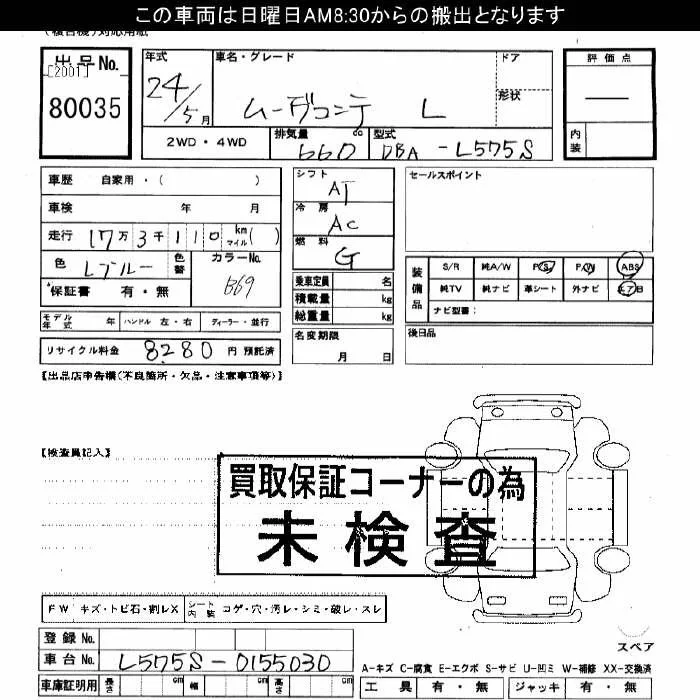 この車両は日曜日AM8:30からの搬出となります
(複合機)対応用紙
出品No.
[2001]
80035
年式
24/5月
車名・グレード
ムーヴコンテ L
ドア
形状
評価点
内装
2WD・4WD
排気量 660 cc
型式 DBA-L575S
車歴 自家用・( )
車検 年 月
走行 17万3千110 km マイル( )
色 Lブルー 色替
カラーNo. B69
保証書 有・無
シフト AT
冷房 AC
燃料 G
乗車定員 名
積載量 kg
総重量 kg
セールスポイント
装備品
S/R 純A/W P/S P/W ABS
純TV 純ナビ 革シート 外ナビ エアB
ナビ型番:
モデル年式 年 ハンドル 左・右 ディーラー・並行
名変期限 月 日
後日品
リサイクル料金 8280 円 預託済
【出品店申告欄(不良箇所・欠品・注意事項等)】
【検査員記入】
買取保証コーナーの為
未検査
FW キズ・トビ石・割レX
シート内装 コゲ・穴・汚レ・シミ・破レ・スレ
登録No.
車台No. L575S-0155030
スペア
車庫証明用 長さ cm 幅 cm 高さ cm
A-キズ C-腐食 E-エクボ S-サビ U-凹ミ W-補修 XX-交換済
工具 有・無 ジャッキ 有・無